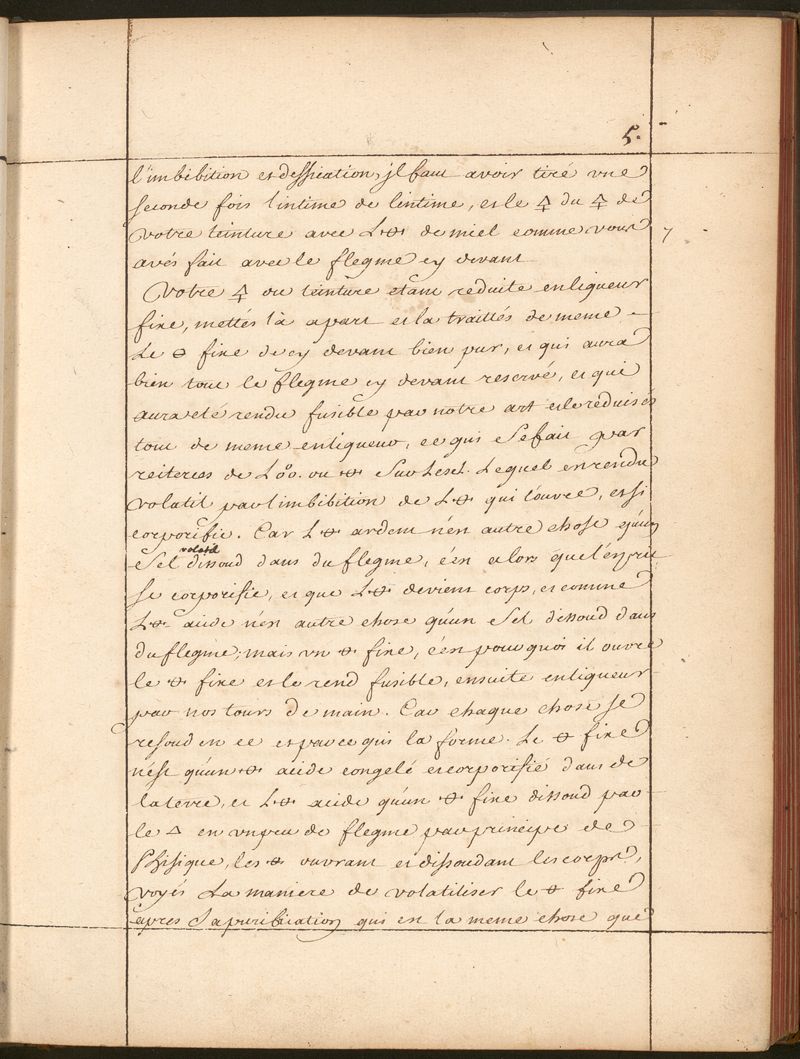 5.
l'imbibition et dessication, jl faut avoir tiré vne
seconde fois lintime de lintime, et le 🜍 du 🜍 de
votre teinture avec L🜔 de miel comme vous
avés fait avec le flegme cy devant
Votre 🜍 ou teinture etant reduite en liqueur
fixe, mettés là apart et la traittés de meme
Le 🜔 fixe de cy devant bien pur, et qui aura
bien tout le flegme cy devant reservé, et qui
aura eté rendu fusible par notre art et le reduisés
tout de meme en liqueur, ce qui se fait par
de ou sur Lequel en rendu
volatil par l'imbibition de qui l'ouvre, et si
corporifie. Car ardent n'en autre chose qu'un
Sel volatil dissoud dans du flegme, c'en alors que l'esprit
se corporifie, et que devient corps, et comme
acide n'en autre chose qu'un Sel dissoud dans
du flegme; mais vn 🜔 fixe, c'en pourquoi il ouvre
le 🜔 fixe et le rend fusible, ensuite en liqueur
par nos tours de main. Car chaque chose se
resoud en ce et par ce qui la forme. Le 🜔 fixe
n'est qu'un acide congelé et corporifié dans de
la terre, et acide qu'un 🜔 fixe dissoud par
le 🜂 en vn peu de flegme par principe de
Phisique, les ouvrant et dissoudant les corps,
voyés La maniere de volatiliser le 🜔 fixe
apres Sa purification qui est la meme chose que